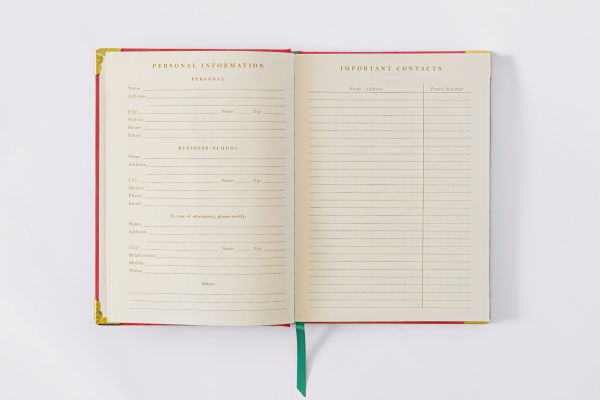 PERSONAL INFORMATION
PERSONAL
Name
Address
City State Zip
Mobile
Home
Email
BUSINESS/SCHOOL
Name
Address
City State Zip
Mobile
Phone
Email
In case of emergency, please notify:
Name
Address
City State Zip
Relationship
Mobile
Phone
Other:
IMPORTANT CONTACTS
Name / Address Phone Number